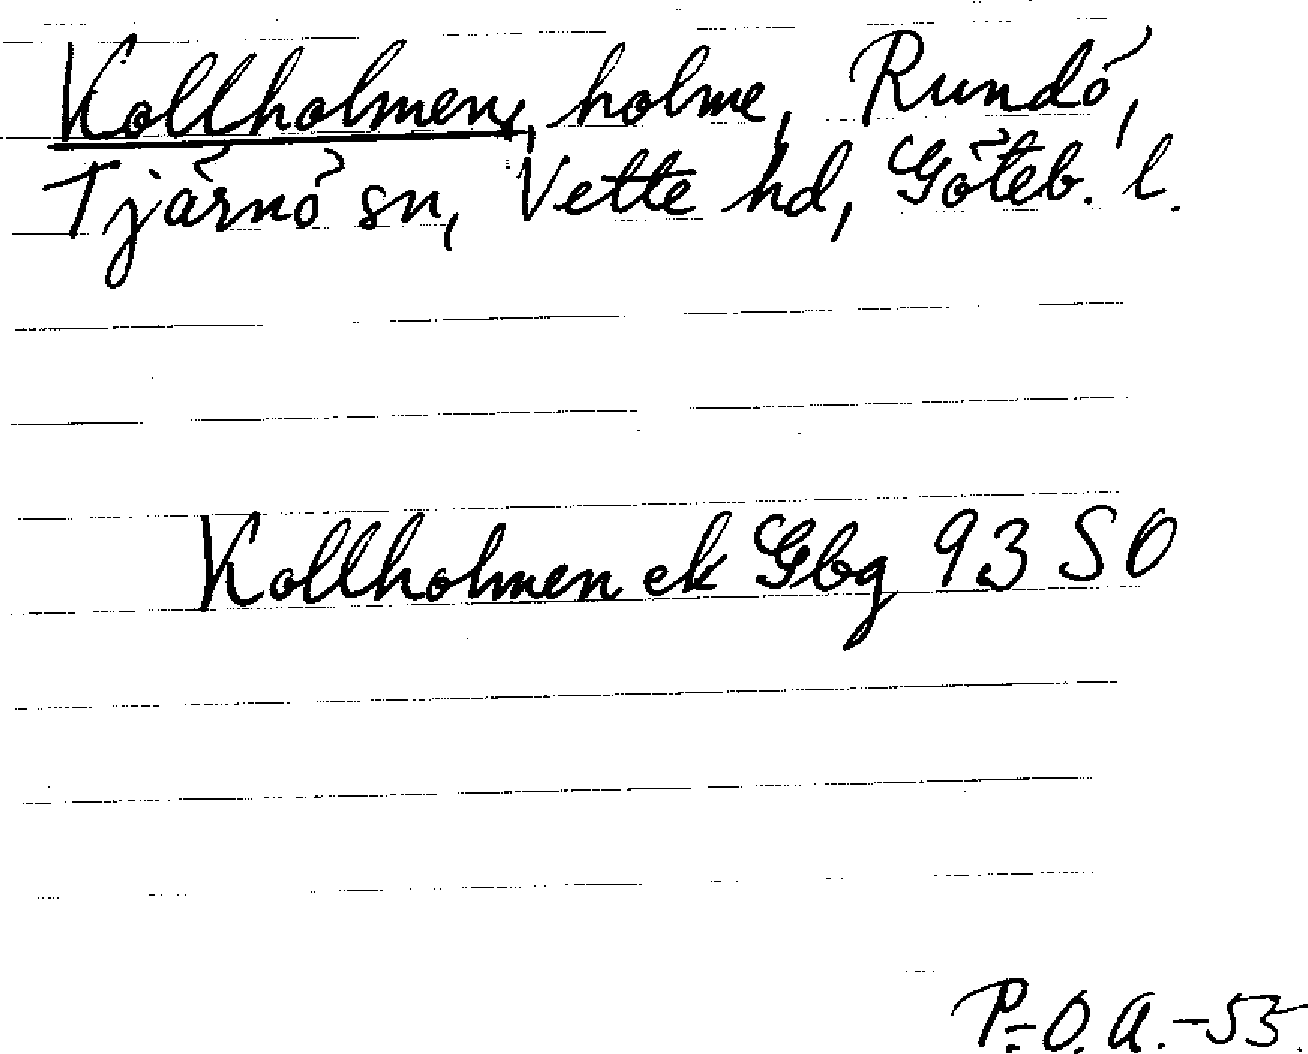 Kollholmen, holme, Rundö,
Tjärnö sn, Vette hd, Göteb. l.
Kollholmen ek Gbg 93 SO
P.-O. A. -55.